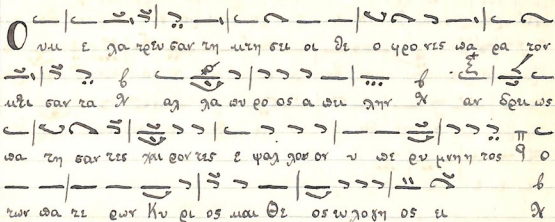 Ο υκ ε λα τρευ σαν τη κτη σει οι θε ο φρο νες πα ρα τον
κτι σαν τα Ν αλ λα πυ ρο ος α πει λην Ν αν δρει ως
πα τη σαν τες χαι ρον τες ε ψαλ λον ον υ πε ρυ μνη η τος ο
των πα τε ρων Κυ ρι ος και Θε ος ευ λογη ος ει Ν